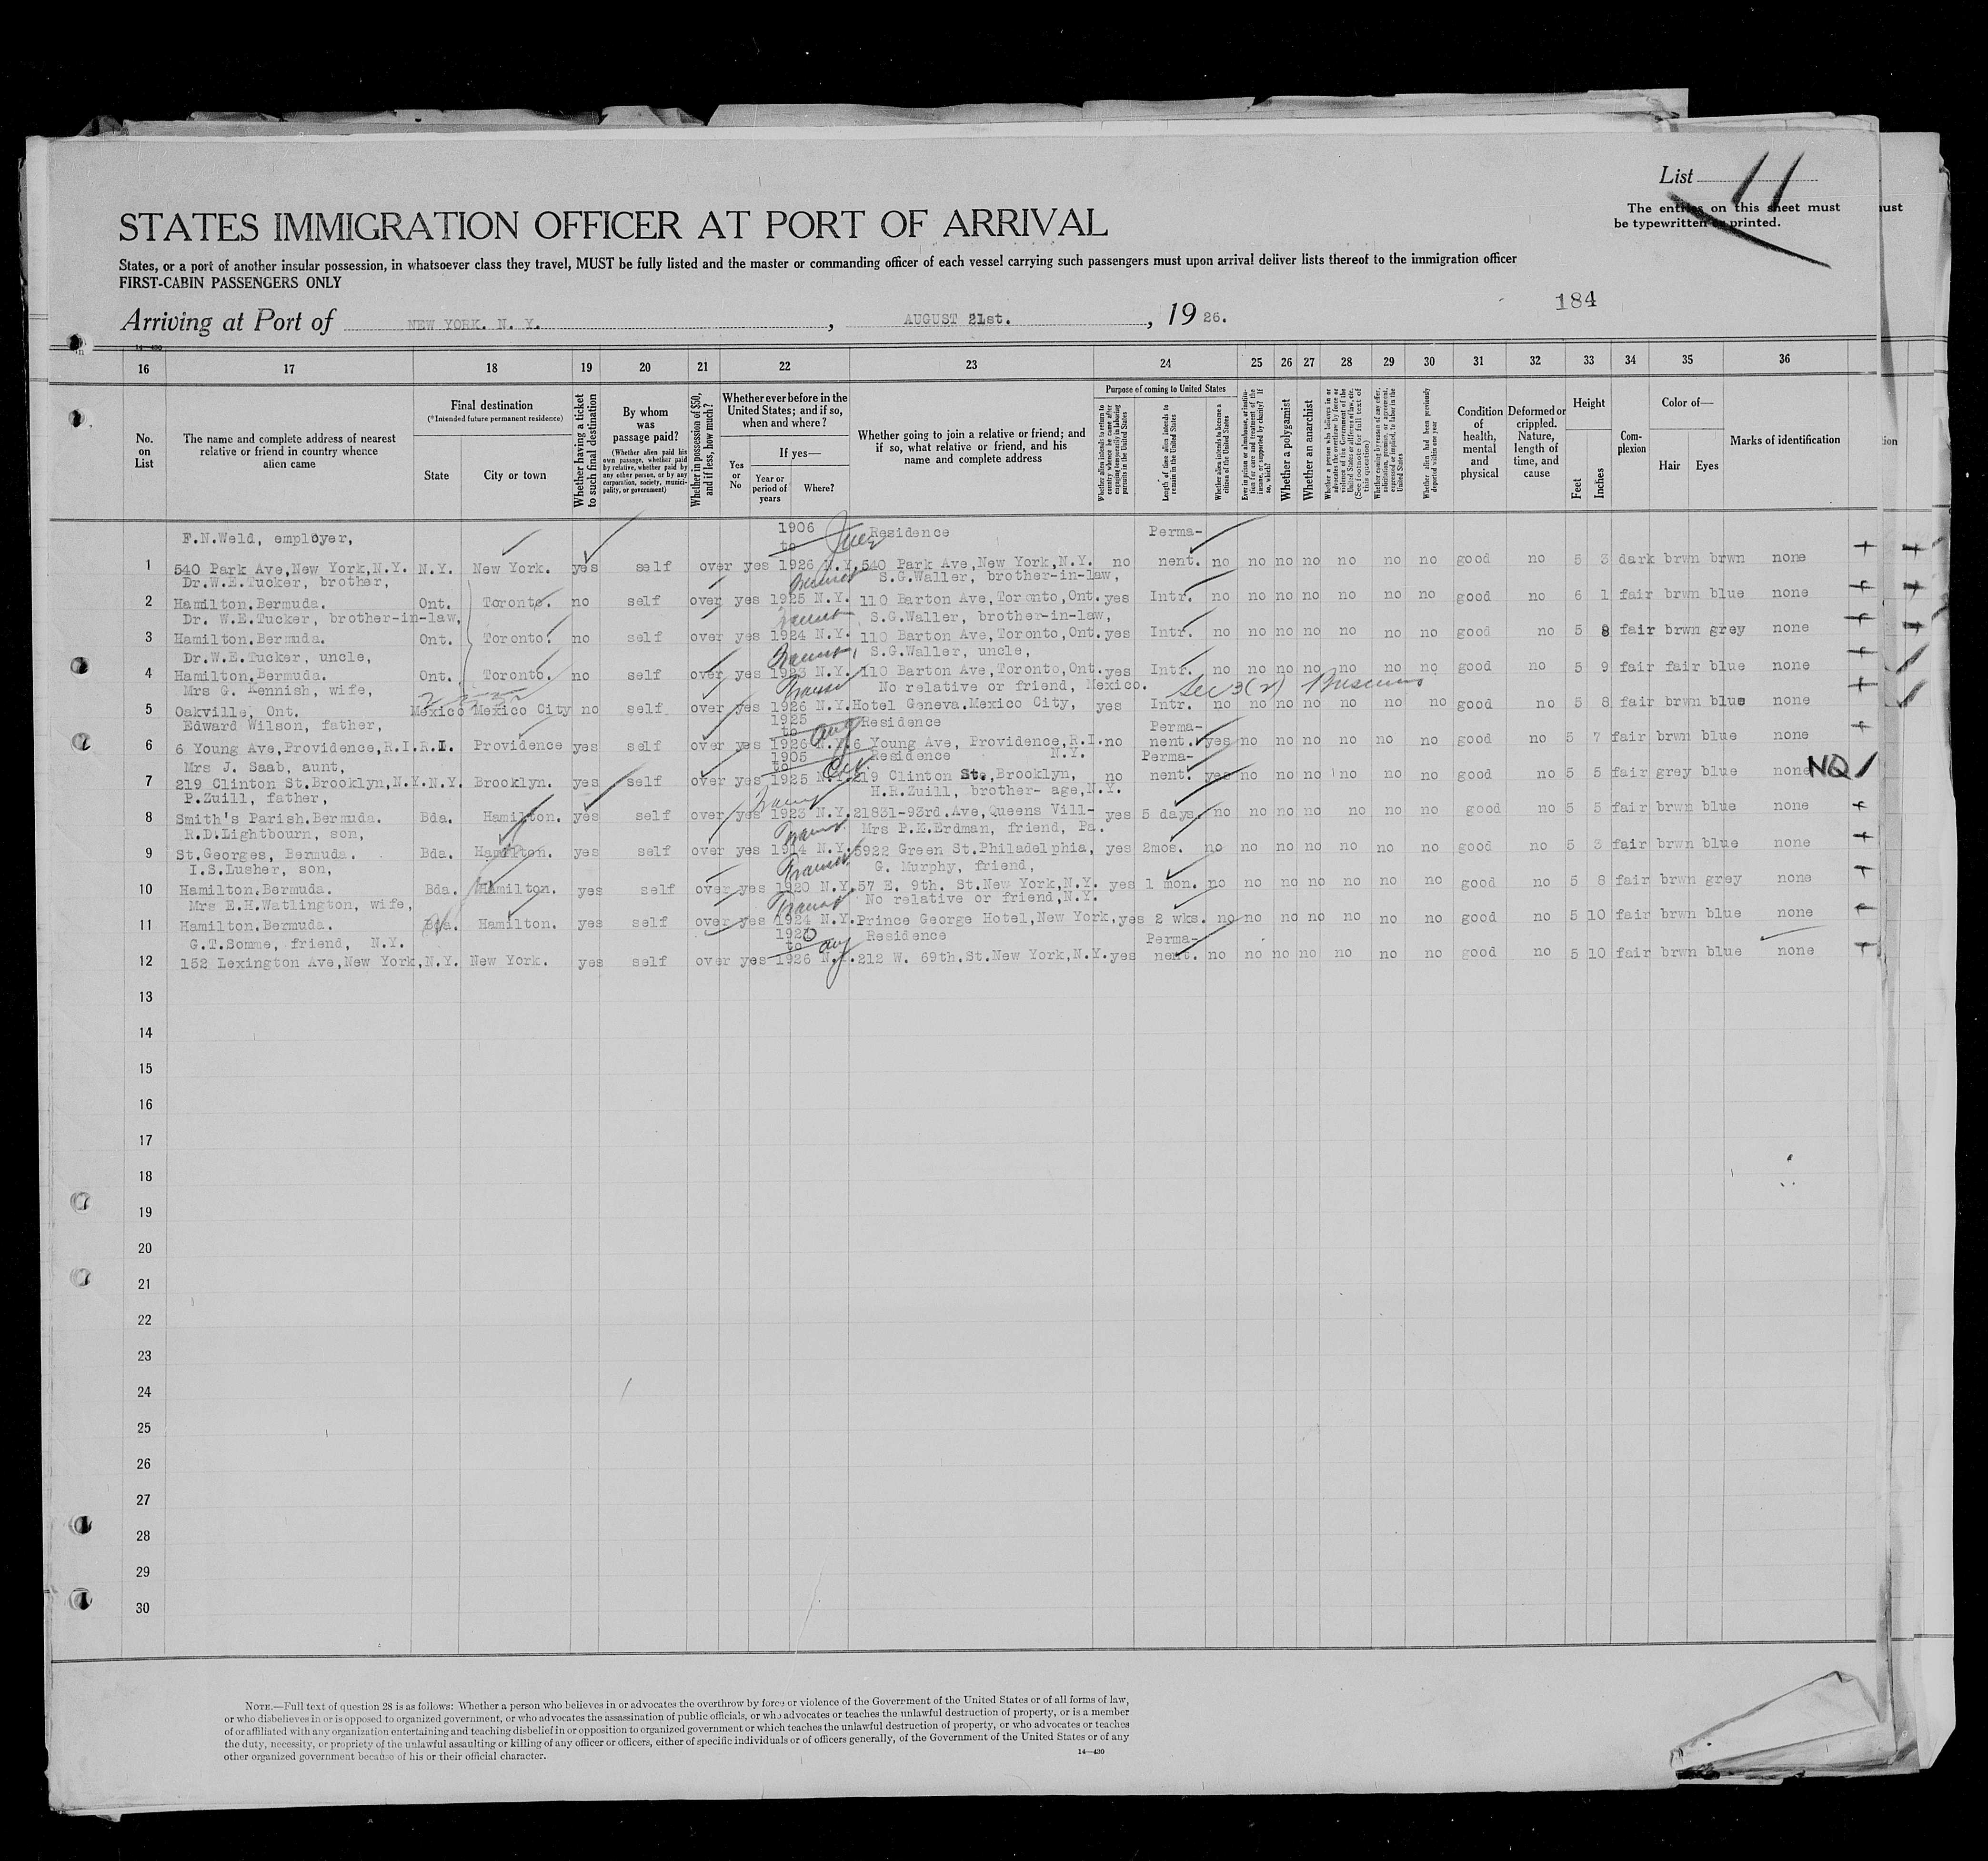 List 11
The entries on this sheet must
be typewritten or printed.
STATES IMMIGRATION OFFICER AT PORT OF ARRIVAL
States, or a port of another insular possession, in whatsoever class they travel, MUST be fully listed and the master or commanding officer of each vessel carrying such passengers must upon arrival deliver lists thereof to the immigration officer
FIRST-CABIN PASSENGERS ONLY
184
Arriving at Port of NEW YORK. N. Y. , AUGUST 21st. , 19 26.
14—430
16 17 18 19 20 21 22 23 24 25 26 27 28 29 30 31 32 33 34 35 36
No. on List
The name and complete address of nearest relative or friend in country whence alien came
Final destination
(*Intended future permanent residence)
State
City or town
Whether having a ticket to such final destination
By whom was passage paid?
(Whether alien paid his own passage, whether paid by relative, whether paid by any other person, or by any corporation, society, municipality, or government)
Whether in possession of $50, and if less, how much?
Whether ever before in the United States; and if so, when and where?
Yes or No
If yes—
Year or period of years
Where?
Whether going to join a relative or friend; and if so, what relative or friend, and his name and complete address
Purpose of coming to United States
Whether alien intends to return to country whence he came after engaging temporarily in laboring pursuits in the United States
Length of time alien intends to remain in the United States
Whether alien intends to become a citizen of the United States
Ever in prison or almshouse, or institution for care and treatment of the insane, or supported by charity? If so, which?
Whether a polygamist
Whether an anarchist
Whether a person who believes in or advocates the overthrow by force or violence of the Government of the United States or all forms of law, etc. (See footnote for full text of this question)
Whether coming by reason of any offer, solicitation, promise, or agreement, expressed or implied, to labor in the United States
Whether alien had been previously deported within one year
Condition of health, mental and physical
Deformed or crippled. Nature, length of time, and cause
Height
Feet
Inches
Complexion
Color of—
Hair
Eyes
Marks of identification
F.N.Weld, employer, 1906 to Residence Perma-
1 540 Park Ave,New York,N.Y. N.Y. New York. yes self over yes 1926 N.Y. 540 Park Ave,New York,N.Y. no nent. no no no no no no no good no 5 3 dark brwn brwn none
Dr.W.E.Tucker, brother, S.G.Waller, brother-in-law,
2 Hamilton.Bermuda. Ont. Toronto. no self over yes 1925 N.Y. 110 Barton Ave,Toronto,Ont. yes Intr. no no no no no no no good no 6 1 fair brwn blue none
Dr. W.E.Tucker, brother-in-law, S.G.Waller, brother-in-law,
3 Hamilton.Bermuda. Ont. Toronto. no self over yes 1924 N.Y. 110 Barton Ave,Toronto,Ont. yes Intr. no no no no no no no good no 5 8 fair brwn grey none
Dr.W.E.Tucker, uncle, S.G.Waller, uncle,
4 Hamilton.Bermuda. Ont. Toronto. no self over yes 1923 N.Y. 110 Barton Ave,Toronto,Ont. yes Intr. no no no no no no no good no 5 9 fair fair blue none
Mrs G. Kennish, wife, No relative or friend, Mexico. Sec 3(2) Business
5 Oakville, Ont. Mexico Mexico City no self over yes 1926 N.Y. Hotel Geneva.Mexico City, yes Intr. no no no no no no no good no 5 8 fair brwn blue none
Edward Wilson, father, 1925 to Aug Residence Perma-
6 6 Young Ave,Providence,R.I. R.I. Providence yes self over yes 1926 N.Y. 6 Young Ave, Providence,R.I. no nent. yes no no no no no no good no 5 7 fair brwn blue none
Mrs J. Saab, aunt, 1905 to Oct Residence N.Y. Perma-
7 219 Clinton St.Brooklyn,N.Y. N.Y. Brooklyn. yes self over yes 1925 N.Y. 219 Clinton St., Brooklyn, no nent. yes no no no no no no good no 5 5 fair grey blue none NQ
P.Zuill, father, H.R.Zuill, brother- age,N.Y.
8 Smith's Parish.Bermuda. Bda. Hamilton. yes self over yes 1923 N.Y. 21831-93rd.Ave,Queens Vill- yes 5 days. no no no no no no no good no 5 5 fair brwn blue none
R.D.Lightbourn, son, Mrs P.K.Erdman, friend, Pa.
9 St.Georges, Bermuda. Bda. Hamilton. yes self over yes 1914 N.Y. 5922 Green St.Philadelphia, yes 2mos. no no no no no no no good no 5 3 fair brwn blue none
I.S.Lusher, son, G. Murphy, friend,
10 Hamilton.Bermuda. Bda. Hamilton. yes self over yes 1920 N.Y. 57 E. 9th. St.New York,N.Y. yes 1 mon. no no no no no no no good no 5 8 fair brwn grey none
Mrs E.H.Watlington, wife, No relative or friend,N.Y.
11 Hamilton.Bermuda. Bda. Hamilton. yes self over yes 1924 N.Y. Prince George Hotel,New York, yes 2 wks. no no no no no no no good no 5 10 fair brwn blue none
G.T.Somme, friend, N.Y. 1920 to Aug Residence Perma-
12 152 Lexington Ave,New York, N.Y. New York. yes self over yes 1926 N.Y. 212 W. 69th.St.New York,N.Y. yes nent. no no no no no no no good no 5 10 fair brwn blue none
13
14
15
16
17
18
19
20
21
22
23
24
25
26
27
28
29
30
NOTE.—Full text of question 28 is as follows: Whether a person who believes in or advocates the overthrow by force or violence of the Government of the United States or of all forms of law,
or who disbelieves in or is opposed to organized government, or who advocates the assassination of public officials, or who advocates or teaches the unlawful destruction of property, or is a member
of or affiliated with any organization entertaining and teaching disbelief in or opposition to organized government or which teaches the unlawful destruction of property, or who advocates or teaches
the duty, necessity, or propriety of the unlawful assaulting or killing of any officer or officers, either of specific individuals or of officers generally, of the Government of the United States or of any
other organized government because of his or their official character.
14—430